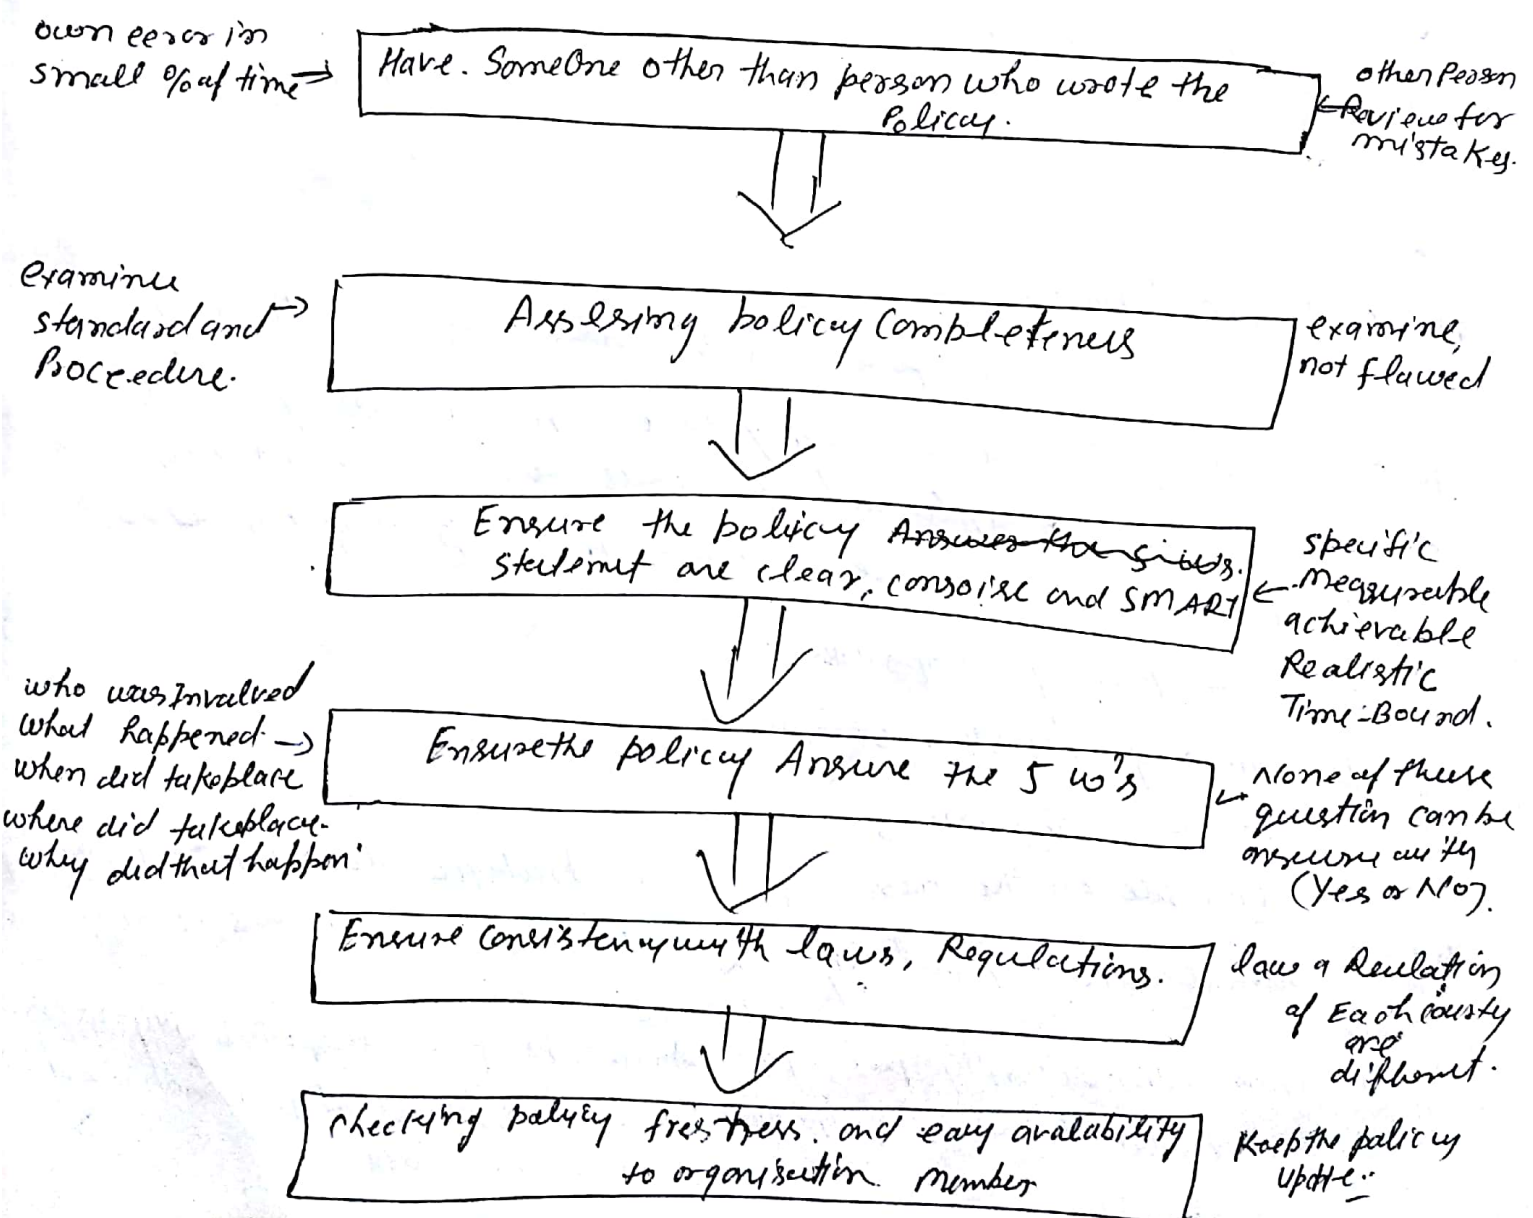 own eeror in
small % of time →
Have. Someone other than person who wrote the
Policy.
other Person
Review for
mistakes.
examine
standard and
Procedure.
Assesing policy Completeness
examine,
not flawed
Ensure the policy Answer the 5 w's.
Statemet are clear, consoise and SMART
specific
measurable
achievable
Realistic
Time-Bound.
who was Involved
what happened
when did takeplace
where did takeplace
why did that happen
Ensure the policy Ansure the 5 w's
None of these
question can be
ansure with
(Yes or No).
Ensure Consistency with laws, Regulations.
law & Reulation
of Each county
are
different.
checking policy freshness. and easy avalability
to organisation member
Keep the policy
update.